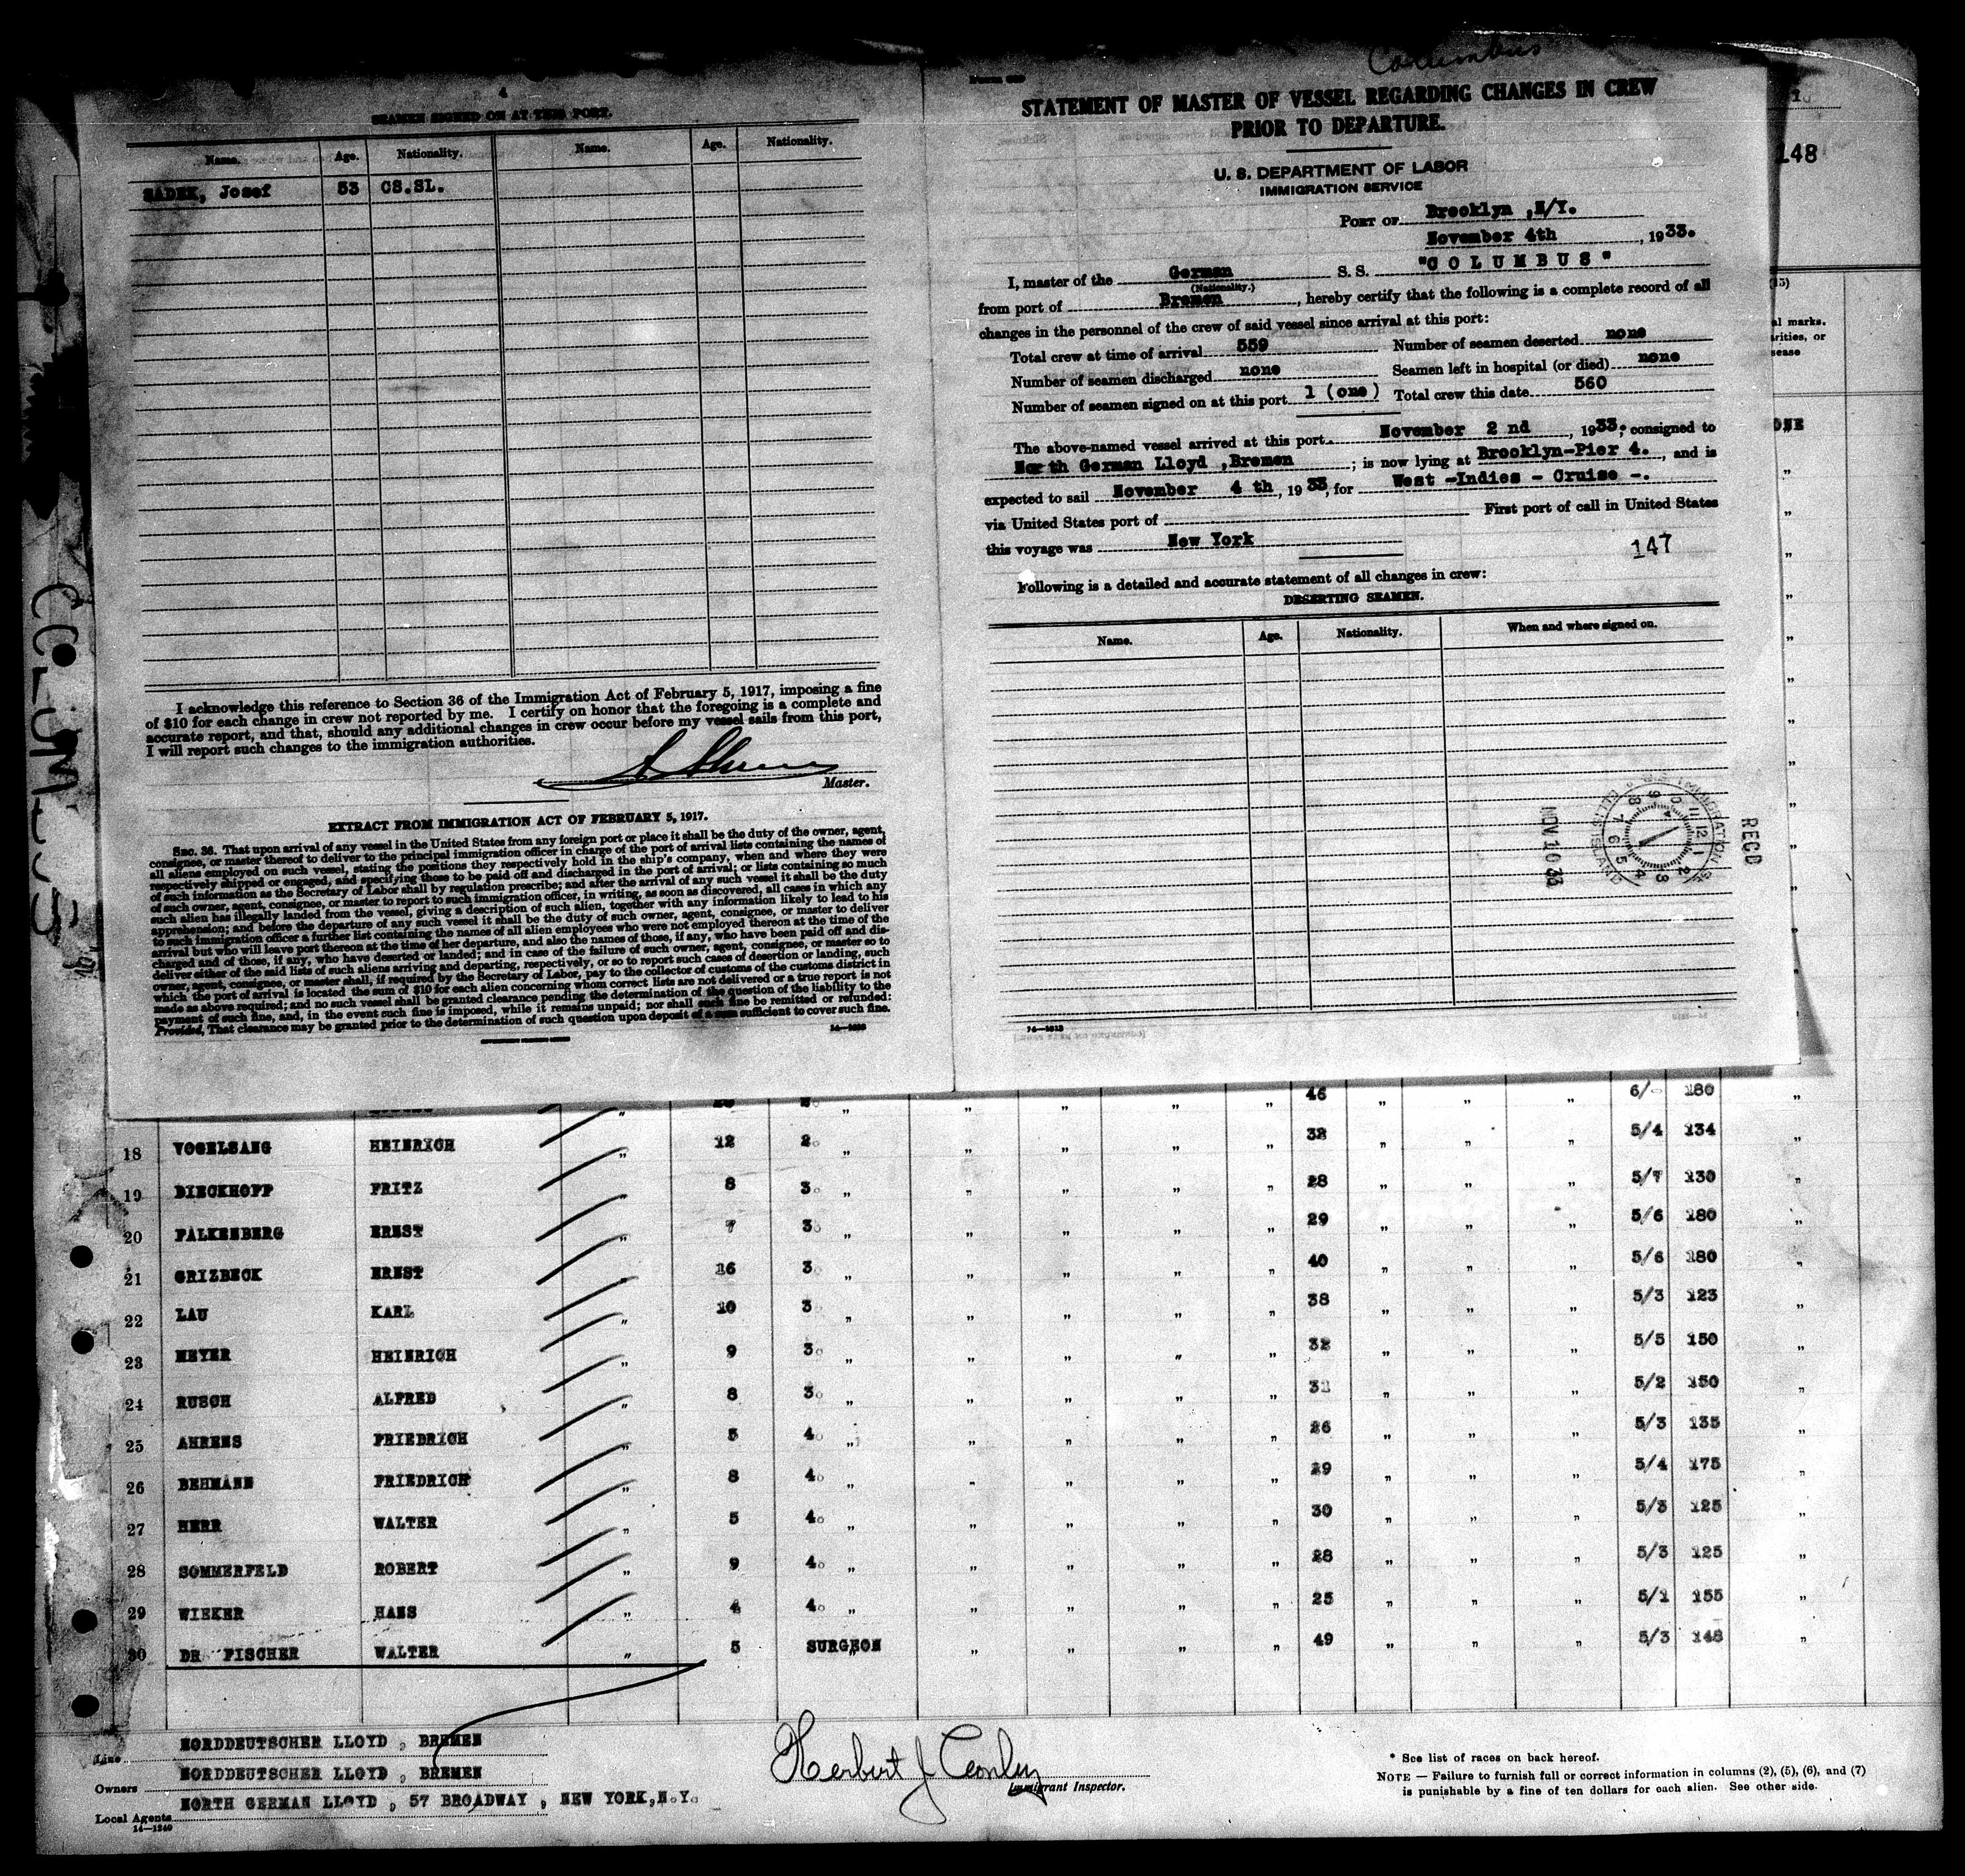 Columbus
4
SEAMEN SIGNED ON AT THIS PORT.
Name. Age. Nationality. Name. Age. Nationality.
SADEK, Josef 53 CS.SL.
I acknowledge this reference to Section 36 of the Immigration Act of February 5, 1917, imposing a fine
of $10 for each change in crew not reported by me. I certify on honor that the foregoing is a complete and
accurate report, and that, should any additional changes in crew occur before my vessel sails from this port,
I will report such changes to the immigration authorities.
Master.
EXTRACT FROM IMMIGRATION ACT OF FEBRUARY 5, 1917.
SEC. 36. That upon arrival of any vessel in the United States from any foreign port or place it shall be the duty of the owner, agent,
consignee, or master thereof to deliver to the principal immigration officer in charge of the port of arrival lists containing the names of
all aliens employed on such vessel, stating the positions they respectively hold in the ship's company, when and where they were
respectively shipped or engaged, and specifying those to be paid off and discharged in the port of arrival; or lists containing so much
of such information as the Secretary of Labor shall by regulation prescribe; and after the arrival of any such vessel it shall be the duty
of such owner, agent, consignee, or master to report to such immigration officer, in writing, as soon as discovered, all cases in which any
such alien has illegally landed from the vessel, giving a description of such alien, together with any information likely to lead to his
apprehension; and before the departure of any such vessel it shall be the duty of such owner, agent, consignee, or master to deliver
to such immigration officer a further list containing the names of all alien employees who were not employed thereon at the time of the
arrival but who will leave port thereon at the time of her departure, and also the names of those, if any, who have been paid off and dis-
charged and of those, if any, who have deserted or landed; and in case of the failure of such owner, agent, consignee, or master so to
deliver either of the said lists of such aliens arriving and departing, respectively, or so to report such cases of desertion or landing, such
owner, agent, consignee, or master shall, if required by the Secretary of Labor, pay to the collector of customs of the customs district in
which the port of arrival is located the sum of $10 for each alien concerning whom correct lists are not delivered or a true report is not
made as above required; and no such vessel shall be granted clearance pending the determination of the question of the liability to the
payment of such fine, and, in the event such fine is imposed, while it remains unpaid; nor shall such fine be remitted or refunded:
Provided, That clearance may be granted prior to the determination of such question upon deposit of a sum sufficient to cover such fine.
STATEMENT OF MASTER OF VESSEL REGARDING CHANGES IN CREW
PRIOR TO DEPARTURE.
U. S. DEPARTMENT OF LABOR
IMMIGRATION SERVICE
PORT OF Brooklyn ,N/Y.
November 4th , 1933.
I, master of the German S. S. "COLUMBUS"
(Nationality.)
from port of Bremen , hereby certify that the following is a complete record of all
changes in the personnel of the crew of said vessel since arrival at this port:
Total crew at time of arrival 559 Number of seamen deserted none
Number of seamen discharged none Seamen left in hospital (or died) none
Number of seamen signed on at this port 1 (one) Total crew this date 560
The above-named vessel arrived at this port November 2 nd , 1933; consigned to
North German Lloyd ,Bremen ; is now lying at Brooklyn-Pier 4. , and is
expected to sail November 4 th , 1933, for West -Indies - Cruise -.
via United States port of First port of call in United States
this voyage was New York
147
Following is a detailed and accurate statement of all changes in crew:
DESERTING SEAMEN.
Name. Age. Nationality. When and where signed on.
RECD
NOV 10 33
14—1313
148
(15)
al marks.
arities, or
sease
COLUMBUS
46 6/ 180
18 VOGELSANG HEINRICH " 12 2. " " " " " 32 " " " 5/4 134 "
19 DIECKHOFF FRITZ " 8 3. " " " " " 28 " " " 5/7 130 "
20 FALKENBERG ERNST " 7 3. " " " " " 29 " " " 5/6 180 "
21 GRIZBECK ERNST " 16 3. " " " " " 40 " " " 5/6 180 "
22 LAU KARL " 10 3. " " " " " 38 " " " 5/3 123 "
23 MEYER HEINRICH " 9 3. " " " " " 32 " " " 5/5 150 "
24 RUSCH ALFRED " 8 3. " " " " " 31 " " " 5/2 150 "
25 AHRENS FRIEDRICH " 5 4. " " " " " 26 " " " 5/3 135 "
26 BEHMANN FRIEDRICH " 8 4. " " " " " 29 " " " 5/4 175 "
27 HERR WALTER " 5 4. " " " " " 30 " " " 5/3 125 "
28 SOMMERFELD ROBERT " 9 4. " " " " " 28 " " " 5/3 125 "
29 WIEKER HANS " 4 4. " " " " " 25 " " " 5/1 155 "
30 DR FISCHER WALTER " 5 SURGEON " " " " 49 " " " 5/3 148 "
Line NORDDEUTSCHER LLOYD , BREMEN
Owners NORDDEUTSCHER LLOYD , BREMEN
Local Agents NORTH GERMAN LLOYD , 57 BROADWAY , NEW YORK,N.Y.
14—1240
Herbert J Conley
Immigrant Inspector.
* See list of races on back hereof.
NOTE — Failure to furnish full or correct information in columns (2), (5), (6), and (7)
is punishable by a fine of ten dollars for each alien. See other side.